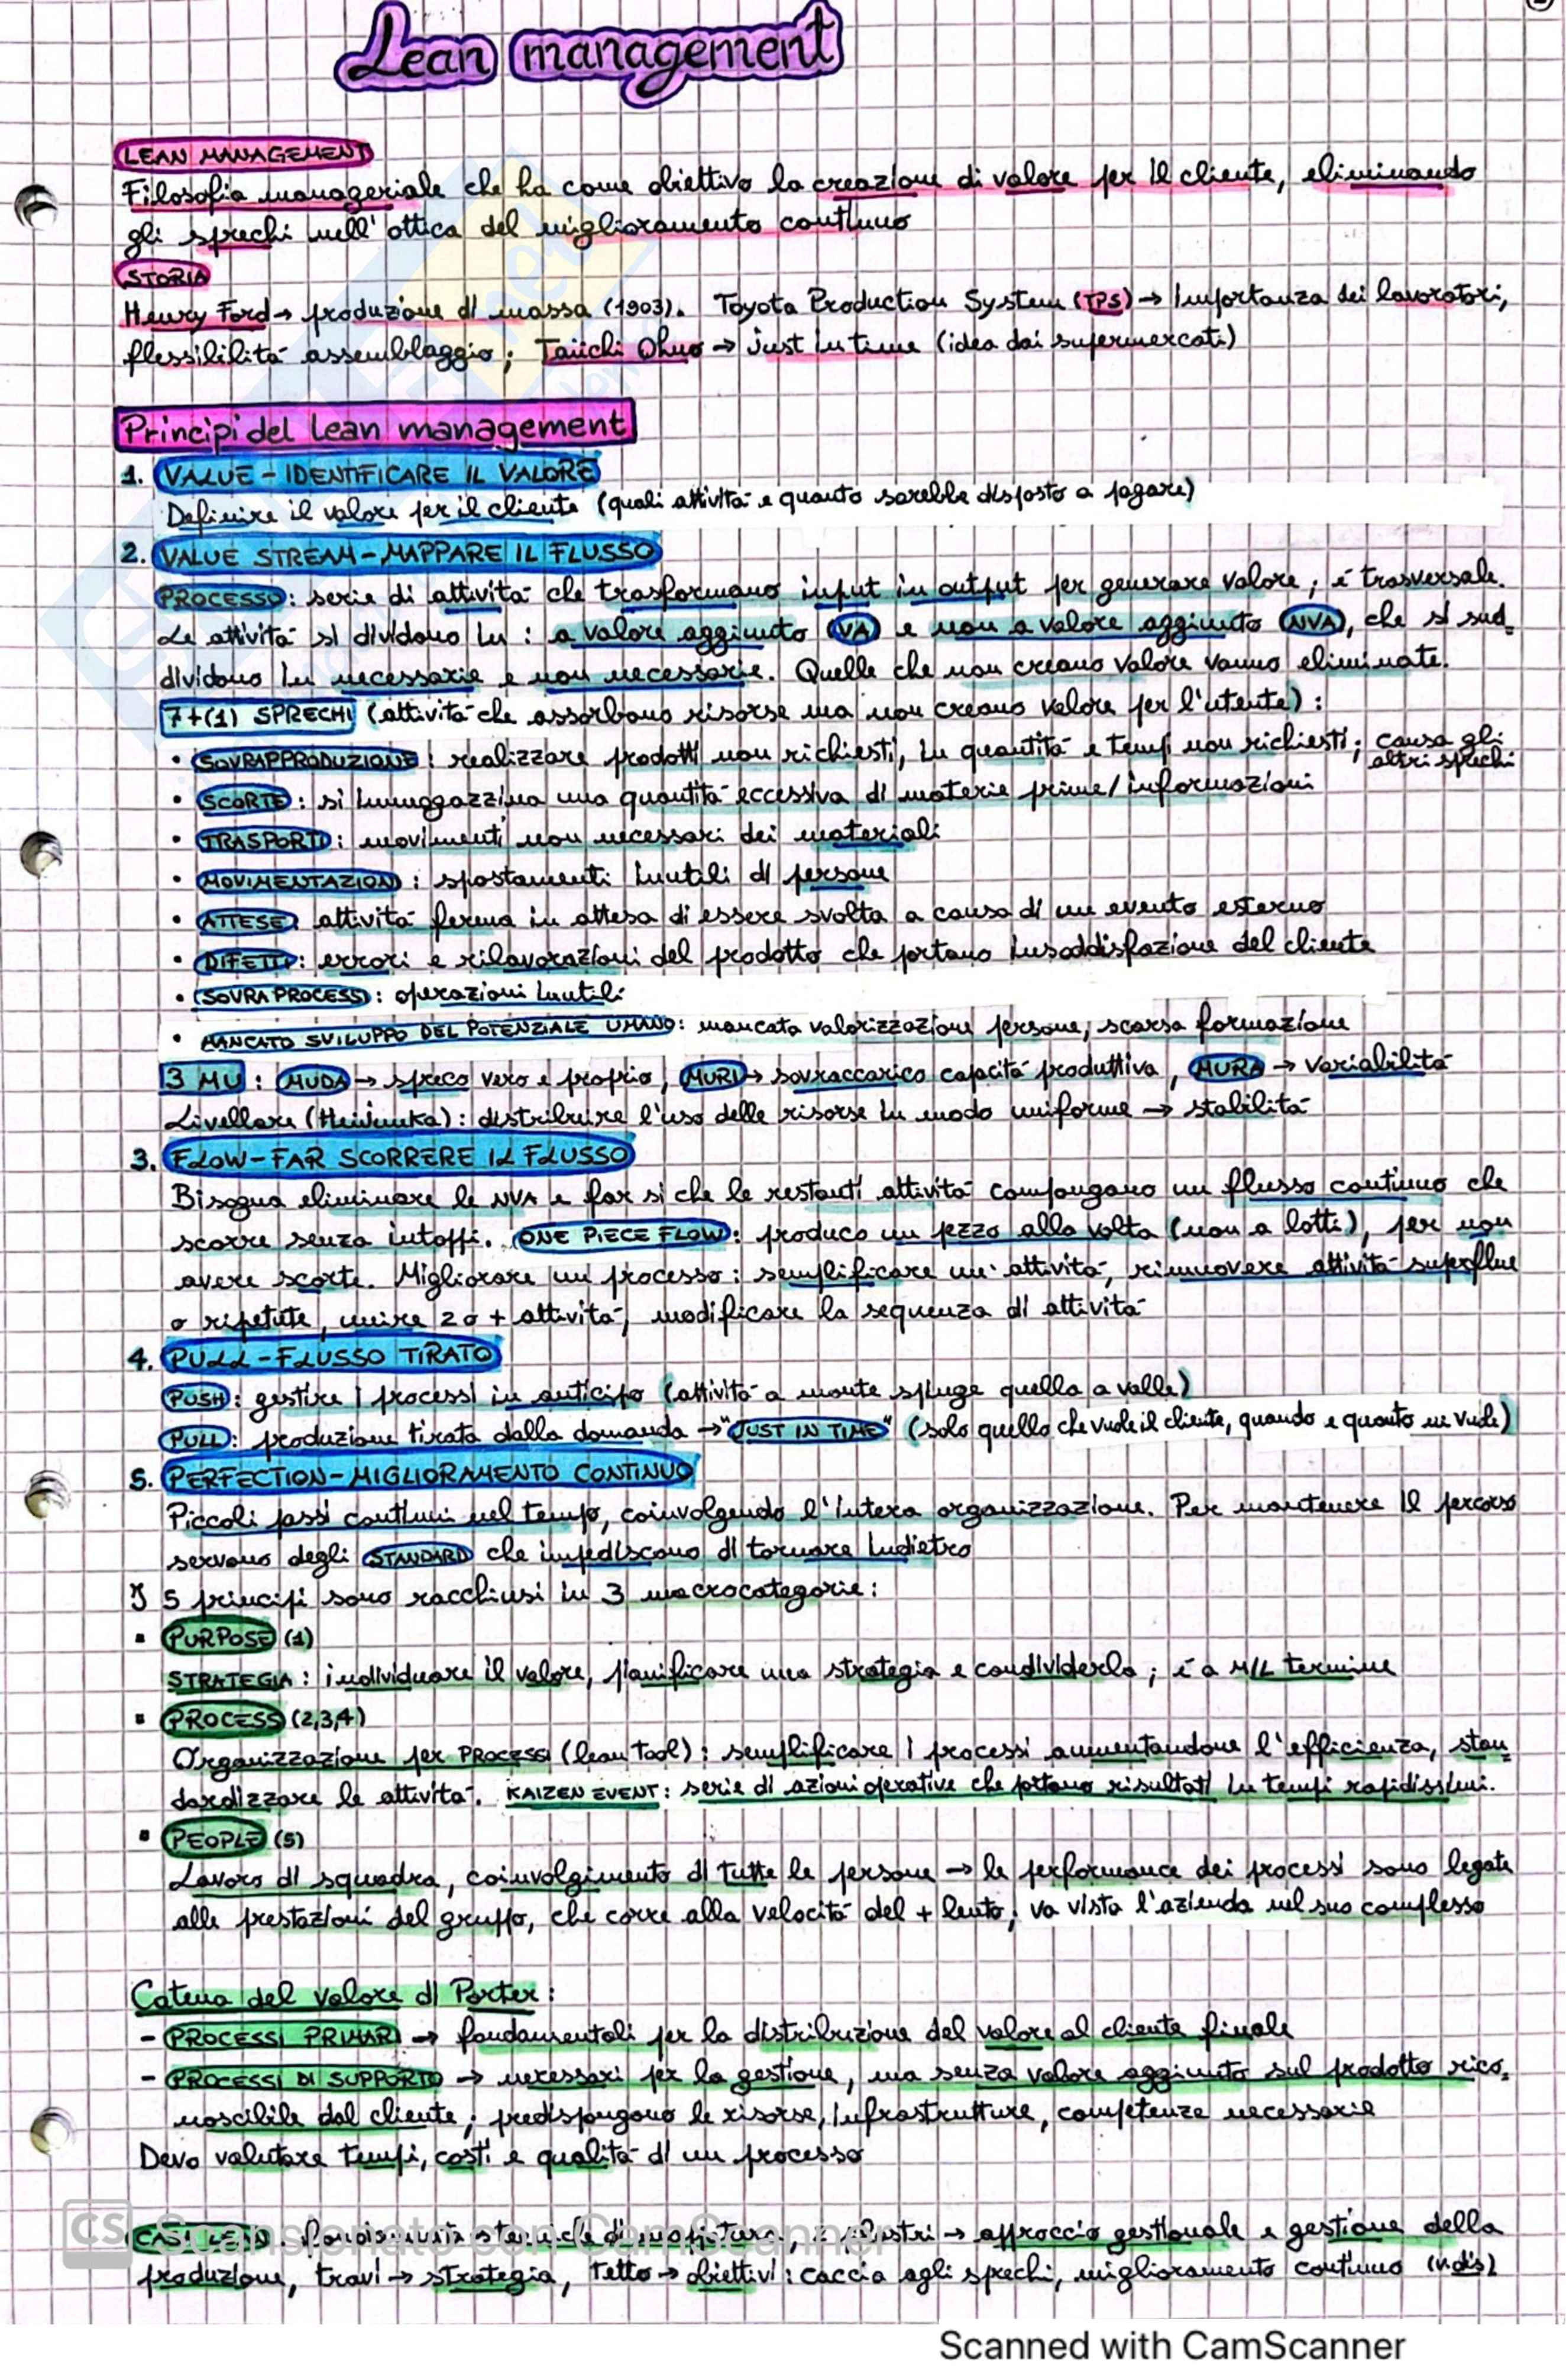 Lean management
LEAN MANAGEMENT
Filosofia manageriale che ha come obiettivo la creazione di valore per il cliente, eliminando
gli sprechi nell'ottica del miglioramento continuo
STORIA
Henry Ford → produzione di massa (1903). Toyota Production System (TPS) → importanza dei lavoratori,
flessibilità assemblaggio; Taiichi Ohno → just in time (idea dai supermercati)
Principi del lean management
1. VALUE - IDENTIFICARE IL VALORE
Definire il valore per il cliente (quali attività e quanto sarebbe disposto a pagare)
2. VALUE STREAM - MAPPARE IL FLUSSO
PROCESSO: serie di attività che trasformano input in output per generare valore; è trasversale.
Le attività si dividono in: a valore aggiunto (VA) e non a valore aggiunto (NVA), che si sud=
dividono in necessarie e non necessarie. Quelle che non creano valore vanno eliminate.
7+(1) SPRECHI (attività che assorbono risorse ma non creano valore per l'utente):
• SOVRAPPRODUZIONE: realizzare prodotti non richiesti, in quantità e tempi non richiesti; causa gli altri sprechi
• SCORTE: si immagazzina una quantità eccessiva di materie prime/informazioni
• TRASPORTI: movimenti non necessari dei materiali
• MOVIMENTAZIONI: spostamenti inutili di persone
• ATTESE: attività ferma in attesa di essere svolta a causa di un evento esterno
• DIFETTI: errori e rilavorazioni del prodotto che portano insoddisfazione del cliente
• SOVRAPROCESSI: operazioni inutili
• MANCATO SVILUPPO DEL POTENZIALE UMANO: mancata valorizzazione persone, scarsa formazione
3 MU: MUDA → spreco vero e proprio, MURI → sovraccarico capacità produttiva, MURA → variabilità
Livellare (Heijunka): distribuire l'uso delle risorse in modo uniforme → stabilità
3. FLOW - FAR SCORRERE IL FLUSSO
Bisogna eliminare le NVA e far sì che le restanti attività compongano un flusso continuo che
scorre senza intoppi. ONE PIECE FLOW: produco un pezzo alla volta (non a lotti), per non
avere scorte. Migliorare un processo: semplificare un'attività, rimuovere attività superflue
o ripetute, unire 2 o + attività, modificare la sequenza di attività
4. PULL - FLUSSO TIRATO
PUSH: gestire i processi in anticipo (attività a monte spinge quella a valle)
PULL: produzione tirata dalla domanda → "JUST IN TIME" (solo quello che vuole il cliente, quando e quanto ne vuole)
5. PERFECTION - MIGLIORAMENTO CONTINUO
Piccoli passi continui nel tempo, coinvolgendo l'intera organizzazione. Per mantenere il percorso
servono degli STANDARD che impediscono di tornare indietro
I 5 principi sono racchiusi in 3 macrocategorie:
▪ PURPOSE (1)
STRATEGIA: individuare il valore, pianificare una strategia e condividerla; è a M/L termine
▪ PROCESS (2,3,4)
Organizzazione per PROCESSI (lean tool): semplificare i processi aumentandone l'efficienza, stan=
dardizzare le attività. KAIZEN EVENT: serie di azioni operative che portano risultati in tempi rapidissimi.
▪ PEOPLE (5)
Lavoro di squadra, coinvolgimento di tutte le persone → le performance dei processi sono legate
alle prestazioni del gruppo, che corre alla velocità del + lento; va vista l'azienda nel suo complesso
Catena del valore di Porter:
- PROCESSI PRIMARI → fondamentali per la distribuzione del valore al cliente finale
- PROCESSI DI SUPPORTO → necessari per la gestione, ma senza valore aggiunto sul prodotto rico=
noscibile dal cliente; predispongono le risorse, infrastrutture, competenze necessarie
Devo valutare tempi, costi e qualità di un processo
CASA LEAN: fondamenta → tecniche di mappatura, 2 pilastri → approccio gestionale e gestione della
produzione, travi → strategia, tetto → obiettivi: caccia agli sprechi, miglioramento continuo (v. dis)
CS Scansionato con CamScanner
Scanned with CamScanner